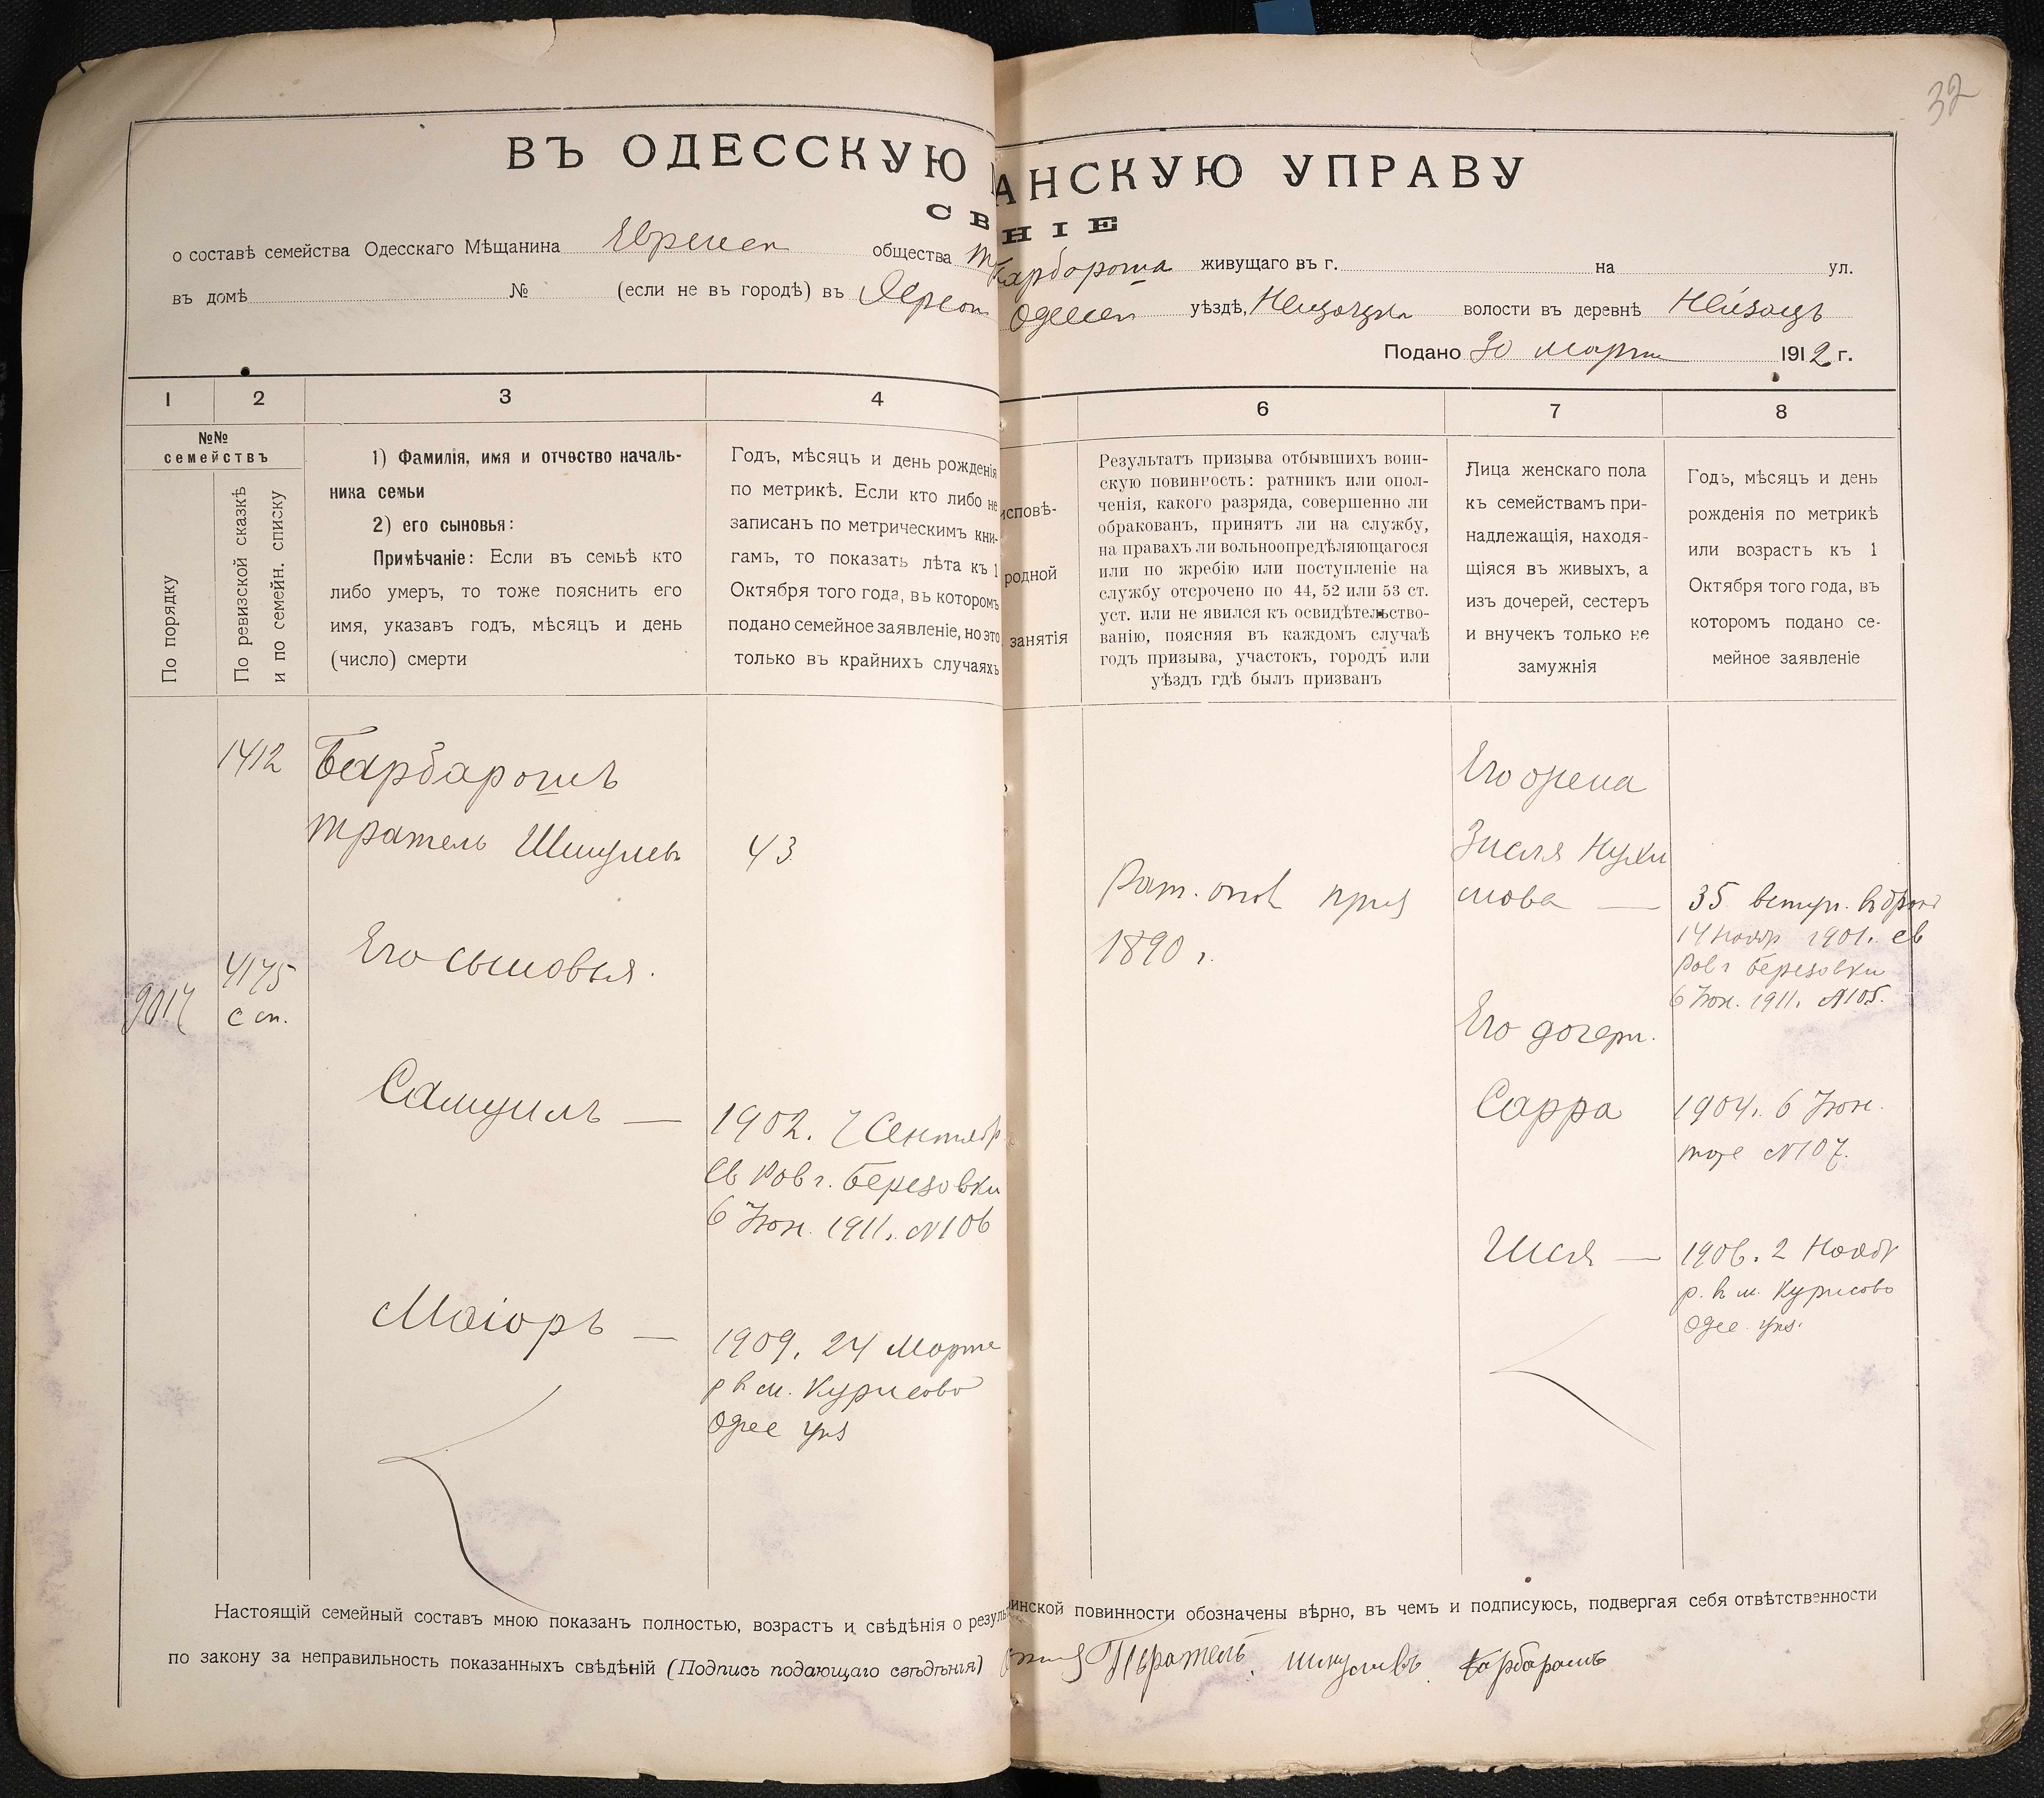 32
ВЪ ОДЕССКУЮ АНСКУЮ УПРАВУ
СВ НІЕ
о составѣ семейства Одесскаго Мѣщанина Еврейск общества Барбороша живущаго въ г. на ул.
въ домѣ № (если не въ городѣ) въ Херсон Одесск уѣздѣ, волости въ деревнѣ Нейзацъ
Подано 30 марта 1912 г.
1 2 3 4 6 7 8
№№
семействъ
По порядку
По ревизской сказкѣ
и по семейн. списку
1) Фамилія, имя и отчество началь-
ника семьи
2) его сыновья:
Примѣчаніе: Если въ семьѣ кто
либо умеръ, то тоже пояснить его
имя, указавъ годъ, мѣсяцъ и день
(число) смерти
Годъ, мѣсяцъ и день рожденія
по метрикѣ. Если кто либо не
записанъ по метрическимъ кни-
гамъ, то показать лѣта къ 1
Октября того года, въ которомъ
подано семейное заявленіе, но это
только въ крайнихъ случаяхъ
исповѣ-
родной
занятія
Результатъ призыва отбывшихъ воин-
скую повинность: ратникъ или опол-
ченія, какого разряда, совершенно ли
обракованъ, принятъ ли на службу,
на правахъ ли вольноопредѣляющагося
или по жребію или поступленіе на
службу отсрочено по 44, 52 или 53 ст.
уст. или не явился къ освидѣтельство-
ванію, поясняя въ каждомъ случаѣ
годъ призыва, участокъ, городъ или
уѣздъ гдѣ былъ призванъ
Лица женскаго пола
къ семействамъ при-
надлежащія, находя-
щіяся въ живыхъ, а
изъ дочерей, сестеръ
и внучекъ только не
замужнія
Годъ, мѣсяцъ и день
рожденія по метрикѣ
или возрастъ къ 1
Октября того года, въ
которомъ подано се-
мейное заявленіе
9017
1412
4175
с сп.
Барбарошъ
Тратель Шмулев
43
Его сыновья.
Самуилъ — 1902. 7 Сентябр
Св Рав г. Березовки
6 Іюн. 1911. №106
Маіоръ — 1909. 24 Марта
р в м. Курисово
Одес уѣз
Рат. опол приз
1890 г.
Его жена
Зисля Нухи
мова — 35 вступ. в брак
14 Ноябр 1901. св
Рав г Березовки
6 Іюн. 1911. №105.
Его дочери.
Сарра 1904. 6 Іюн.
тоже №107.
Шея — 1906. 2 Ноябр
р. в м. Курисово
Одес. уѣз.
Настоящій семейный составъ мною показанъ полностью, возрастъ и свѣдѣнія о резуль инской повинности обозначены вѣрно, въ чемъ и подписуюсь, подвергая себя отвѣтственности
по закону за неправильность показанныхъ свѣдѣній (Подпись подающаго свѣдѣнія) Тратель Шмулевъ Барбарошъ